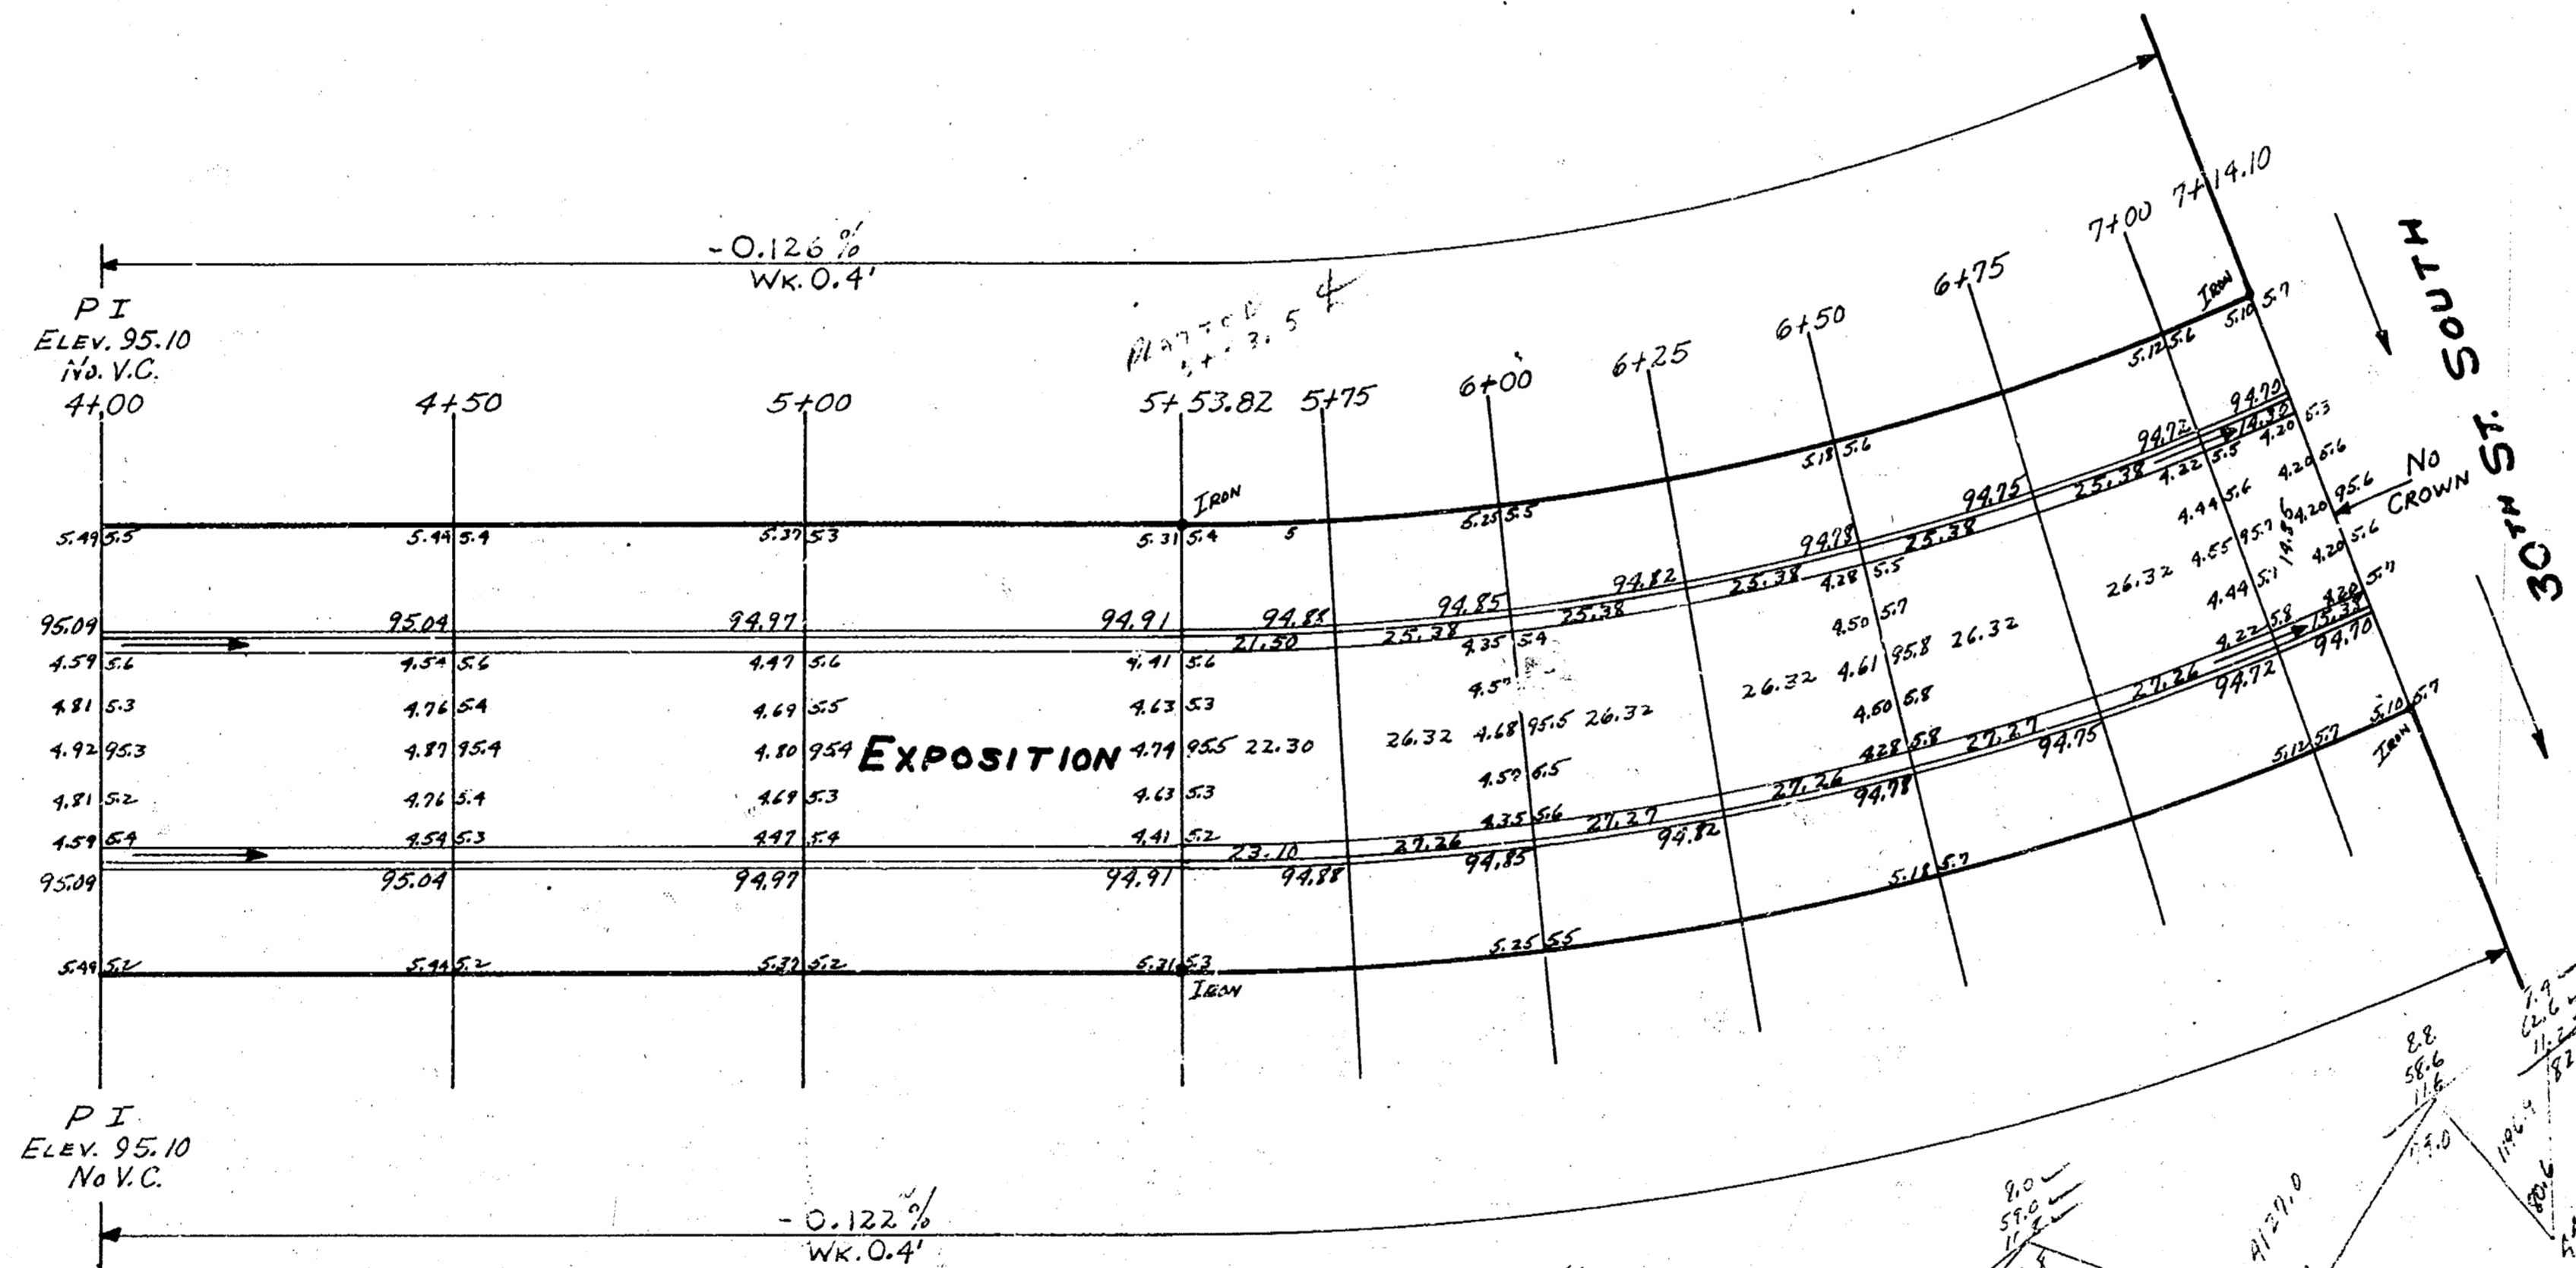 -0.126 %
WK. 0.4'
P I
ELEV. 95.10
No. V.C.
4+00
4+50
5+00
5+53.82
5+75
6+00
6+25
6+50
6+75
7+00
7+14.10
30TH ST. SOUTH
IRON
IRON
5.49 5.5
5.44 5.4
5.37 5.3
5.31 5.4
5
5.25 5.5
5.18 5.6
5.12 5.6
5.10 5.7
95.09
95.04
94.97
94.91
94.88
94.85
94.82
94.78
94.75
94.72
94.70
21.50
25.38
25.38
25.38
25.38
25.38
14.30
4.59 5.6
4.54 5.6
4.47 5.6
4.41 5.6
4.35 5.4
4.28 5.5
4.22 5.5
4.20 5.3
4.81 5.3
4.76 5.4
4.69 5.5
4.63 5.3
4.50 5.7
4.44 5.6
4.20 5.6
4.92 95.3
4.87 95.4
4.80 95.4
EXPOSITION
4.74 95.5
22.30
26.32
4.68 95.5
26.32
26.32
4.61 95.8
26.32
26.32
4.55 95.7
14.86
4.20 95.6
No
CROWN
4.81 5.2
4.76 5.4
4.69 5.3
4.63 5.3
4.57 5.5
4.50 5.8
4.44 5.7
4.20 5.6
4.59 5.4
4.54 5.3
4.47 5.4
4.41 5.2
4.35 5.6
4.28 5.8
4.22 5.8
4.20 5.7
23.10
27.26
27.27
27.26
27.27
27.26
15.38
95.09
95.04
94.97
94.91
94.88
94.85
94.82
94.78
94.75
94.72
94.70
5.49 5.2
5.44 5.2
5.37 5.2
5.31 5.3
5.25 5.5
5.18 5.7
5.12 5.7
5.10 5.7
IRON
IRON
P I
ELEV. 95.10
No V.C.
-0.122 %
WK. 0.4'
9.0
59.0
8.8
58.6
11.6